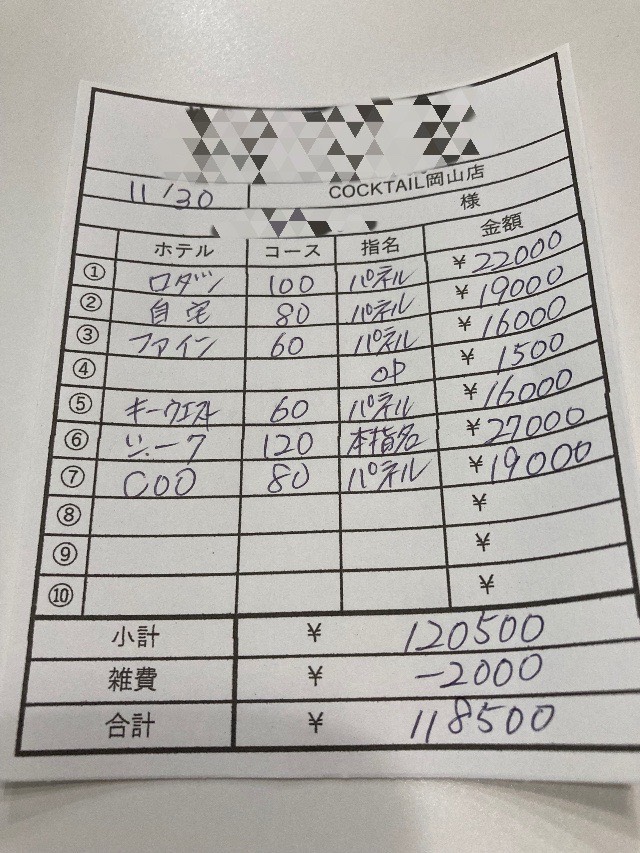 COCKTAIL岡山店
11/30
様
ホテル コース 指名 金額
① ロダン 100 パネル ¥22000
② 自宅 80 パネル ¥19000
③ ファイン 60 パネル ¥16000
④ OP ¥1500
⑤ キーウエスト 60 パネル ¥16000
⑥ 120 本指名 ¥27000
⑦ COO 80 パネル ¥19000
⑧ ¥
⑨ ¥
⑩ ¥
小計 ¥ 120500
雑費 ¥ -2000
合計 ¥ 118500